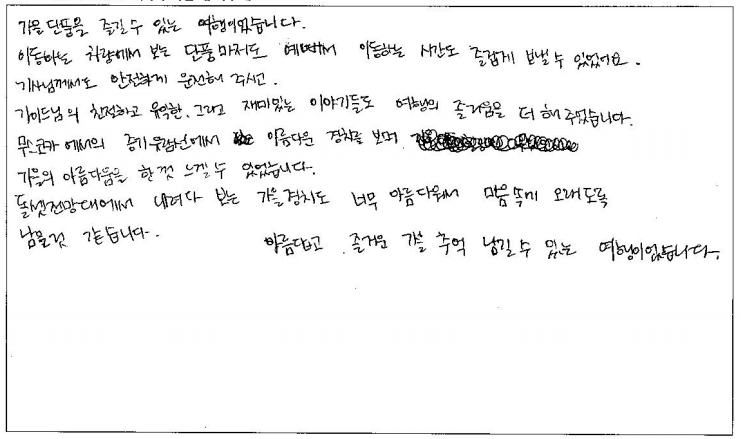 가을 단풍을 즐길 수 있는 여행이었습니다.
이동하는 차량에서 보는 단풍마저도 예뻐서 이동하는 시간도 즐겁게 보낼 수 있었어요.
기사님께서도 안전하게 운전해 주시고.
가이드님의 친절하고 유익한, 그리고 재미있는 이야기들도 여행의 즐거움을 더 해 주었습니다.
무스코카에서의 증기유람선에서 아름다운 경치를 보며
가을의 아름다움을 한껏 느낄 수 있었습니다.
돌셋전망대에서 내려다 보는 가을경치도 너무 아름다워서 마음속에 오래도록
남을것 같습니다. 아름답고 즐거운 가을 추억 남길 수 있는 여행이었습니다.